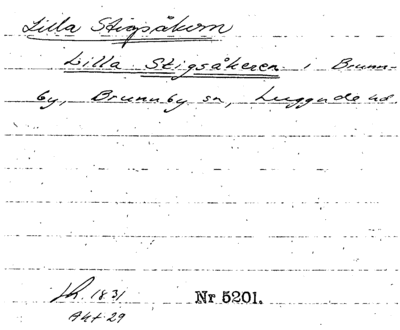 Lilla Stigsåkern
Lilla Stigsåkeren i Brunn-
by, Brunnby sn, Luggude hd
1831
Akt 29
Nr 5201.